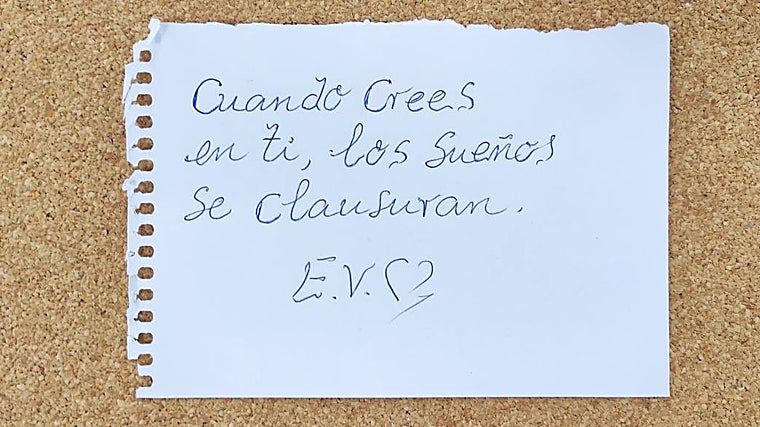 Cuando Crees
en ti, los sueños
se clausuran.
E.V.